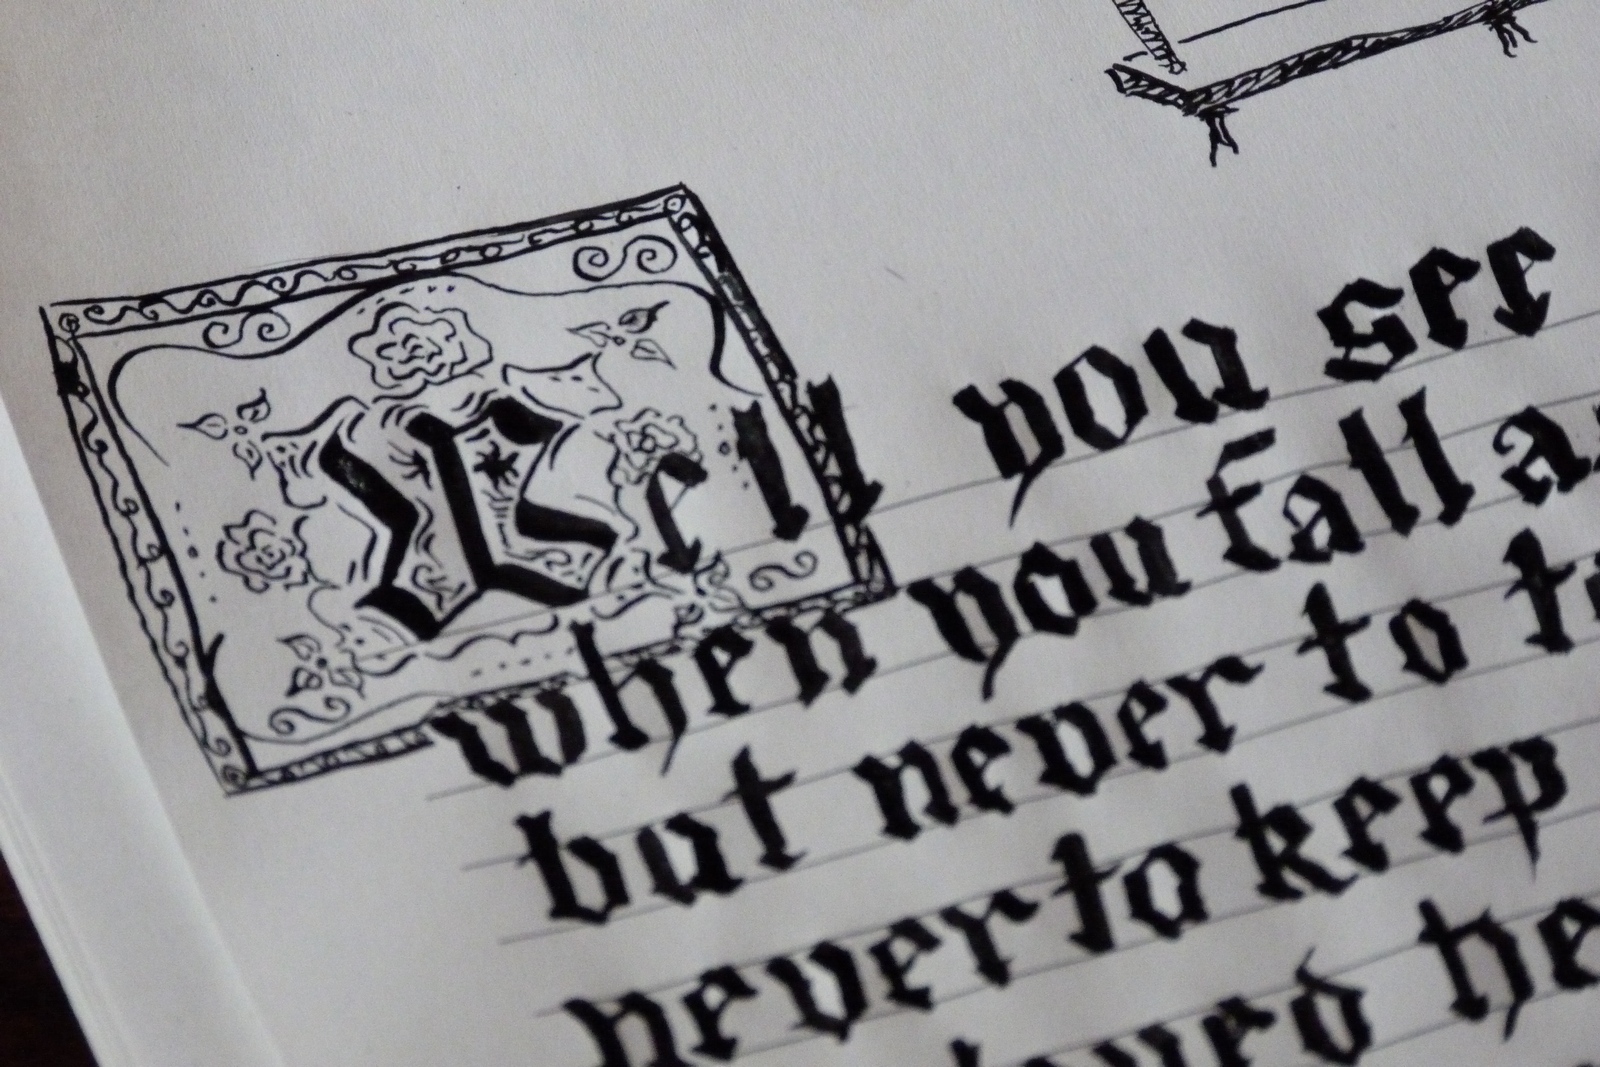 Well you see
when you fall
but never to
never to keep